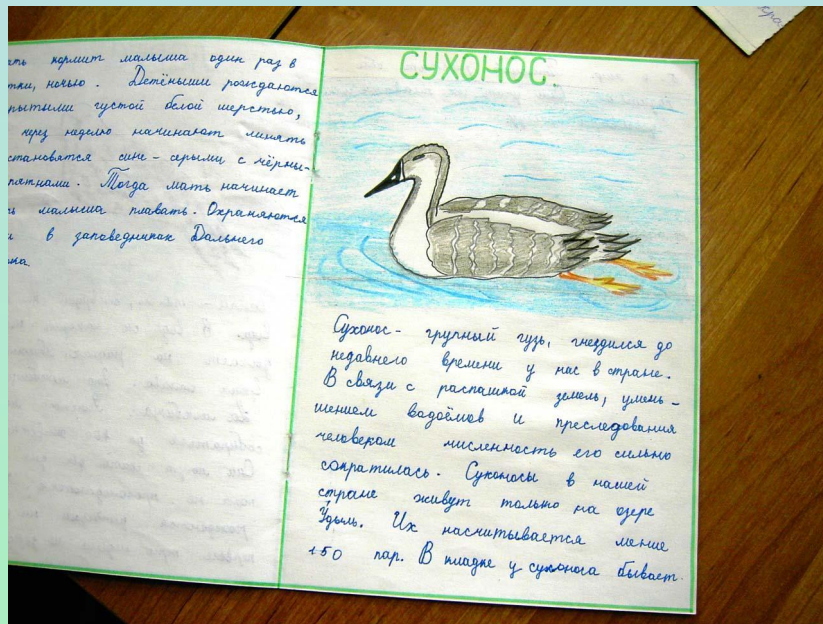 ать кормит малыша один раз в
тки, ночью. Детёныши рождаются
рытыми густой белой шерстью,
через неделю начинают линять
становятся сине-серыми с чёрны-
пятнами. Тогда мать начинает
ь малыша плавать. Охраняются
и в заповедниках Дальнего
ока.
СУХОНОС.
Сухонос - групный гузь, гнездился до
недавнего времени у нас в стране.
В связи с распашкой земель, умень-
шением водоёмов и преследования
человеком численность его сильно
сократилась. Сухоносы в нашей
стране живут только на озере
Удыль. Их насчитывается менее
150 пар. В кладке у сухоноса бывает